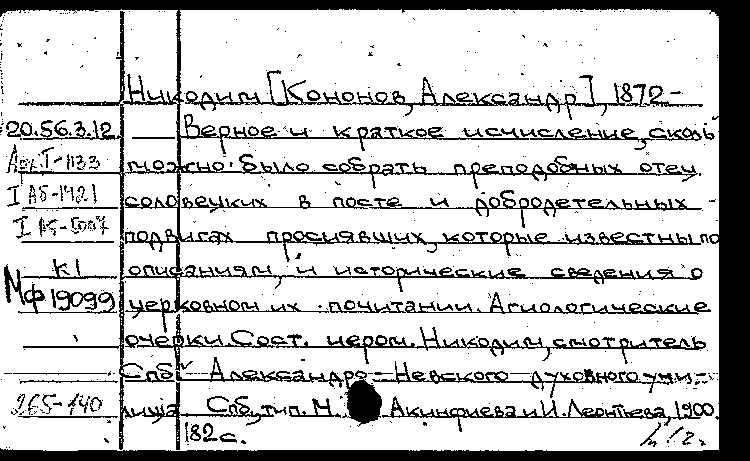 Никодим [Кононов, Александр], 1872-
20.56.3.12 Верное и краткое исчисление, сколь
можно было собрать преподобных отец
I А5-1421 соловецких в посте и добродетельных
подвигах просиявших, которые известны по
К1 описаниям, и исторические сведения о
Мф 19099 церковном их почитании. Агиологические
очерки. Сост. иером. Никодим, смотритель
Спб Александро-Невского духовного учи-
265-140 лища. Спб, тип. М. Акинфиева и И. Леонтьева, 1900.
182 с.